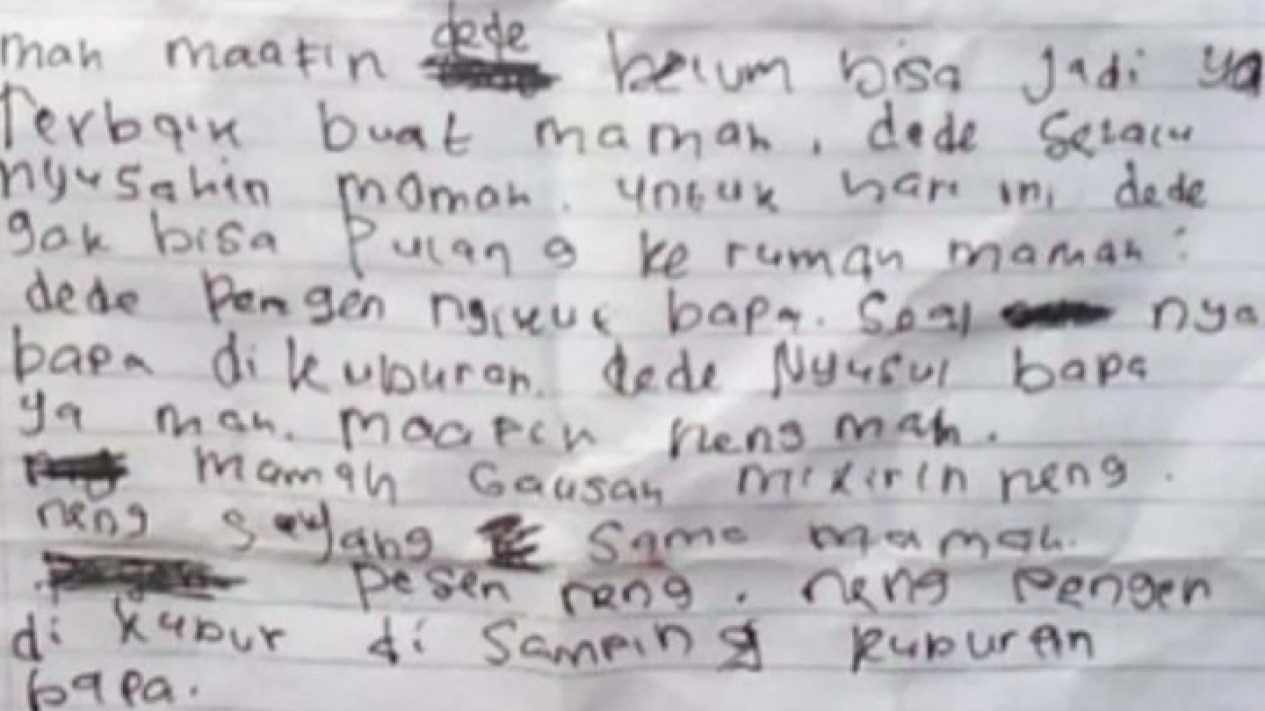 mah maafin dede belum bisa jadi ya
Terbaik buat mamah. dede selalu
nyusahin mamah. untuk hari ini dede
gak bisa Pulang ke rumah mamah.
dede Pengen ngikut bapa. Soal nya
bapa di kuburan. dede Nyusul bapa
ya mah. maapin neng mah.
mamah Gausah mikirin neng.
neng sayang sama mamah.
Pesen neng. neng Pengen
di kubur di Samping kuburan
bapa.